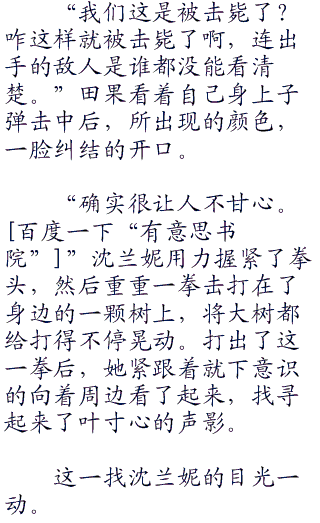 “我们这是被击毙了？
咋这样就被击毙了啊，连出
手的敌人是谁都没能看清
楚。”田果看着自己身上子
弹击中后，所出现的颜色，
一脸纠结的开口。
“确实很让人不甘心。
[百度一下“有意思书
院”]”沈兰妮用力握紧了拳
头，然后重重一拳击打在了
身边的一颗树上，将大树都
给打得不停晃动。打出了这
一拳后，她紧跟着就下意识
的向着周边看了起来，找寻
起来了叶寸心的声影。
这一找沈兰妮的目光一
动。